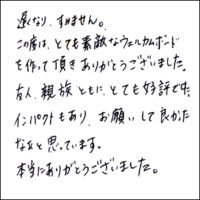 遅くなり、すみません。
この度は、とても素敵なウェルカムボード
を作って頂きありがとうございました。
友人、親族ともに、とても好評でした。
インパクトもあり、お願いして良かった
なぁと思っています。
本当にありがとうございました。